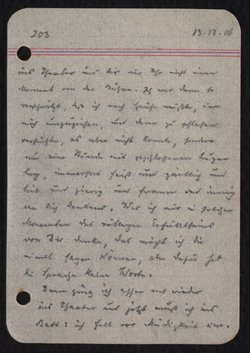 203 13.12.06
ins Theater und bis nur Uhr nicht einen
Moment von der Bühne. Ich war dann so
erschöpft, daß ich nach Hause mußte, um
mich umzuziehen, und dann zu schlafen
versuchte, es aber nicht konnte, sondern
nur eine Stunde mit geschlossenen Augen
lag, immerfort heiß und zärtlich und
lieb und und innig
an Dich denkend. Was ich mir in solchen
Momenten des völligen Erfülltseins
von Dir denke, das möcht ich Dir
einmal sagen können, aber dafür hat
die Sprache keine Worte.
Dann ging ich essen und wieder
ins Theater und jetzt muß ich ins
Bett: ich fall vor Müdigkeit um.